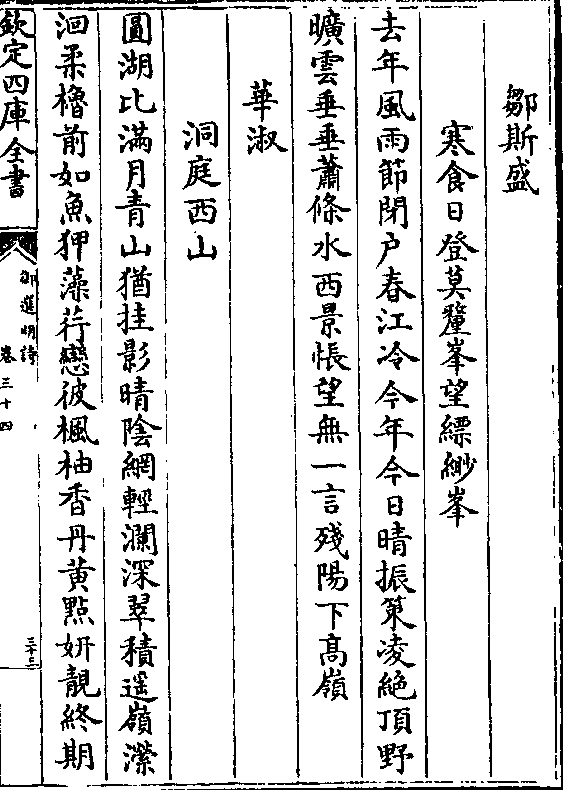 鄒斯盛
寒食日登莫釐峯望縹緲峯
去年風雨節閉户春江冷今年今日晴振策凌絶頂野
曠雲垂垂蕭條水西景悵望無一言殘陽下高嶺
華淑
洞庭西山
圓湖比滿月青山猶挂影晴陰網輕瀾深翠積遥嶺瀠
洄柔櫓前如魚狎藻荇戀彼楓柚香丹黄點妍靚終期
欽定四庫全書
御選明詩
卷三十四
三十三